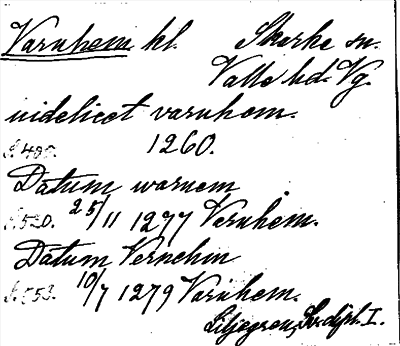 Varnhem kl. Skarke sn.
Valle hd. Vg.
videlicet varnhem.
S. 400. 1260.
Datum warnem
S. 520. 25/11 1277 Varnhem.
Datum Vernehm
S. 553. 10/7 1279 Varnhem.
Liljegren, Sv. dipl. I.